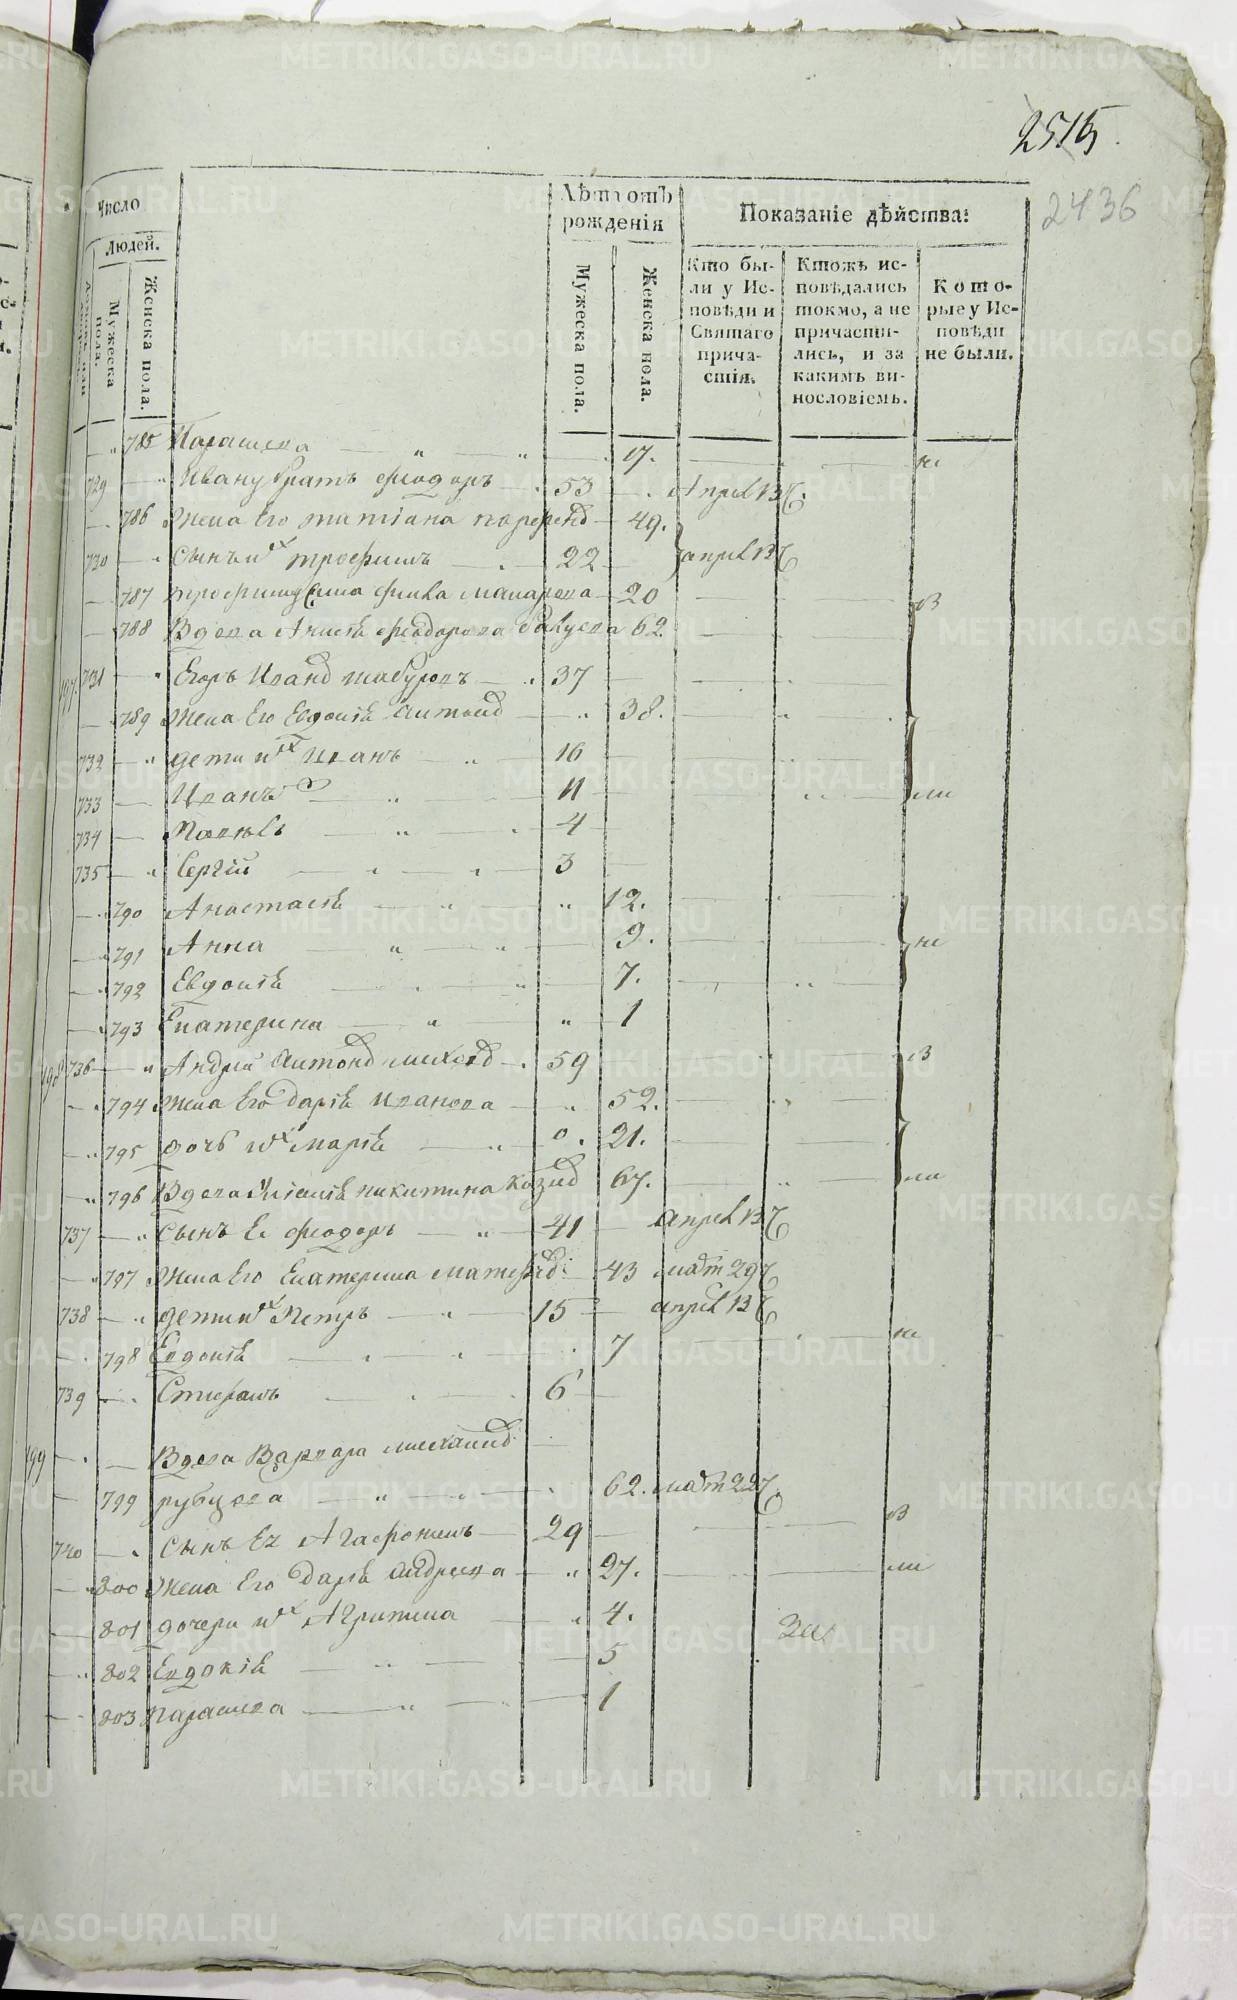 2515
2436
Число
Людей.
Мужеска пола.
Женска пола.
Лѣтотъ рожденія
Мужеска пола.
Женска пола.
Показаніе дѣйства:
Кто бы-
ли у Ис-
повѣди и
Святаго
прича-
стія.
Ктожъ ис-
повѣдались
токмо, а не
причасти-
лись, и за
какимъ ви-
нословіемъ.
Кото-
рые у Ис-
повѣди
не были.
785 Парасшева 17. не
729 Ивану братъ феодоръ 53 Април 13
786 жена Его татіана 49.
730 Сынъ ихъ трофимъ 22 април 13
787 трофиму жена макарова 20
788 Вдова феодорова 62 в
197 731 Егоръ Иванов шабуровъ 37
789 жена Его Евдокія Антонов 38.
732 дети ихъ Иванъ 16
733 Иванъ 11 ли
734 Павелъ 4
735 Сергій 3
790 Анастасія 12.
791 Анна 9. не
792 Евдокія 7.
793 Екатерина 1
198 736 Андрей Антонов 59 в
794 жена Его дарія иванова 52.
795 дочь ихъ марія 21.
796 Вдова никитина 67. ли
737 Сынъ Ея феодоръ 41 април 13
797 жена Его Екатерина 43 март 29
738 дети ихъ Петръ 15 април 13
798 Евдокія 7 не
739 Стефанъ 6
199 Вдова Варвара михаилов
799 рубцова 62. март 22
740 Сынъ Ея Агафонъ 29 в
800 жена Его дарія Андреева 27. ли
801 дочери ихъ Агрипина 4.
802 Евдокія 5
803 парасшева 1
METRIKI.GASO-URAL.RU